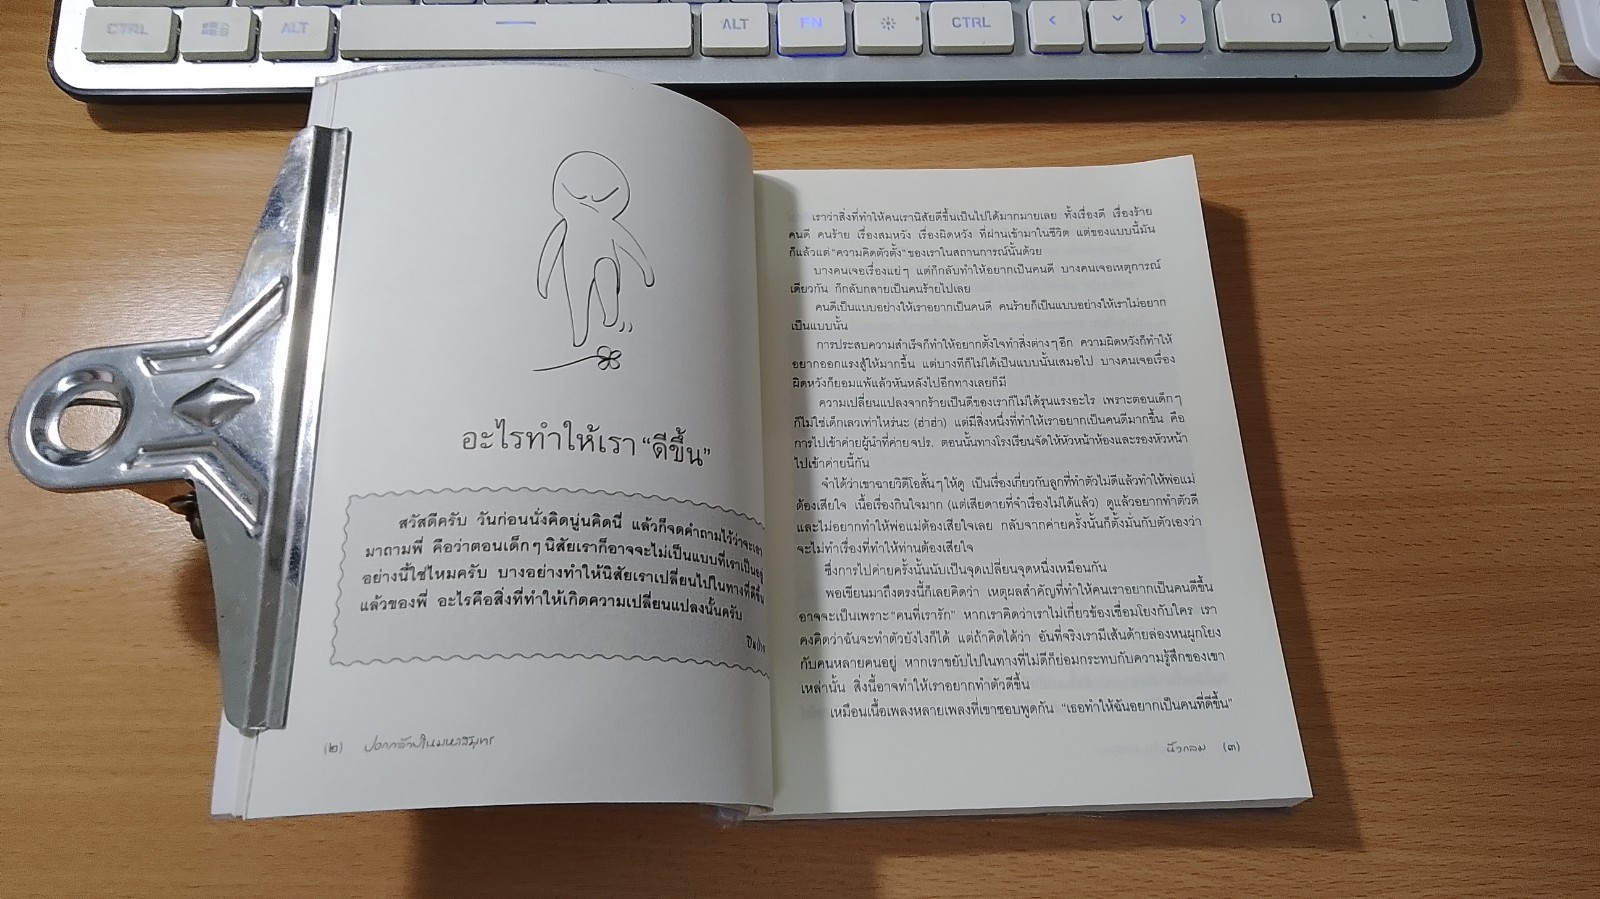 CTRL
ALT
ALT
FN
CTRL
อะไรทำให้เรา “ดีขึ้น”
สวัสดีครับ วันก่อนนั่งคิดนู่นคิดนี่ แล้วก็จดคำถามไว้ว่าจะเอา
มาถามพี่ คือว่าตอนเด็กๆ นิสัยเราก็อาจจะไม่เป็นแบบที่เราเป็นอยู่
อย่างนี้ใช่ไหมครับ บางอย่างทำให้นิสัยเราเปลี่ยนไปในทางที่ดีขึ้น
แล้วของพี่ อะไรคือสิ่งที่ทำให้เกิดความเปลี่ยนแปลงนั้นครับ
(๒)
เราว่าสิ่งที่ทำให้คนเรานิสัยดีขึ้นเป็นไปได้มากมายเลย ทั้งเรื่องดี เรื่องร้าย
คนดี คนร้าย เรื่องสมหวัง เรื่องผิดหวัง ที่ผ่านเข้ามาในชีวิต แต่ของแบบนี้มัน
ก็แล้วแต่ “ความคิดตัวตั้ง” ของเราในสถานการณ์นั้นด้วย
บางคนเจอเรื่องแย่ๆ แต่ก็กลับทำให้อยากเป็นคนดี บางคนเจอเหตุการณ์
เดียวกัน ก็กลับกลายเป็นคนร้ายไปเลย
คนดีเป็นแบบอย่างให้เราอยากเป็นคนดี คนร้ายก็เป็นแบบอย่างให้เราไม่อยาก
เป็นแบบนั้น
การประสบความสำเร็จก็ทำให้อยากตั้งใจทำสิ่งต่างๆ อีก ความผิดหวังก็ทำให้
อยากออกแรงสู้ให้มากขึ้น แต่บางทีก็ไม่ได้เป็นแบบนั้นเสมอไป บางคนเจอเรื่อง
ผิดหวังก็ยอมแพ้แล้วหันหลังไปอีกทางเลยก็มี
ความเปลี่ยนแปลงจากร้ายเป็นดีของเราก็ไม่ได้รุนแรงอะไร เพราะตอนเด็กๆ
ก็ไม่ใช่เด็กเลวเท่าไหร่นะ (ฮ่าฮ่า) แต่มีสิ่งหนึ่งที่ทำให้เราอยากเป็นคนดีมากขึ้น คือ
การไปเข้าค่ายผู้นำที่ค่าย จปร. ตอนนั้นทางโรงเรียนจัดให้หัวหน้าห้องและรองหัวหน้า
ไปเข้าค่ายนี้กัน
จำได้ว่าเขาฉายวิดีโอสั้นๆ ให้ดู เป็นเรื่องเกี่ยวกับลูกที่ทำตัวไม่ดีแล้วทำให้พ่อแม่
ต้องเสียใจ เนื้อเรื่องกินใจมาก (แต่เสียดายที่จำเรื่องไม่ได้แล้ว) ดูแล้วอยากทำตัวดี
และไม่อยากทำให้พ่อแม่ต้องเสียใจเลย กลับจากค่ายครั้งนั้นก็ตั้งมั่นกับตัวเองว่า
จะไม่ทำเรื่องที่ทำให้ท่านต้องเสียใจ
ซึ่งการไปค่ายครั้งนั้นนับเป็นจุดเปลี่ยนจุดหนึ่งเหมือนกัน
พอเขียนมาถึงตรงนี้ก็เลยคิดว่า เหตุผลสำคัญที่ทำให้คนเราอยากเป็นคนดีขึ้น
อาจจะเป็นเพราะ “คนที่เรารัก” หากเราคิดว่าเราไม่เกี่ยวข้องเชื่อมโยงกับใคร เรา
คงคิดว่าฉันจะทำตัวยังไงก็ได้ แต่ถ้าคิดได้ว่า อันที่จริงเรามีเส้นด้ายล่องหนผูกโยง
กับคนหลายคนอยู่ หากเราขยับไปในทางที่ไม่ดีก็ย่อมกระทบกับความรู้สึกของเขา
เหล่านั้น สิ่งนี้อาจทำให้เราอยากทำตัวดีขึ้น
เหมือนเนื้อเพลงหลายเพลงที่เขาชอบพูดกัน “เธอทำให้ฉันอยากเป็นคนที่ดีขึ้น”
นิ้วกลม (๓)